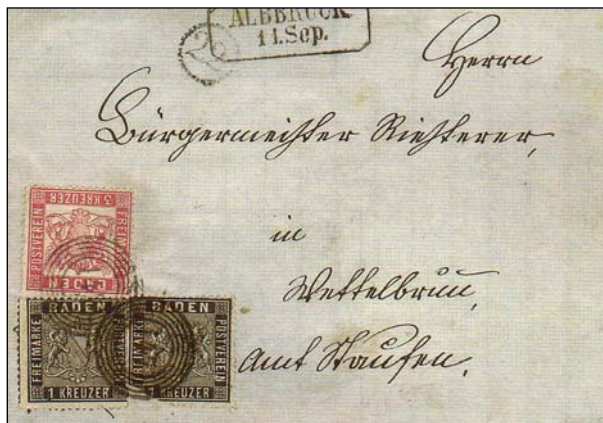 ALBBRUCK
11.Sep.
Herrn
Bürgermeister Riesterer,
in
Wettelbrun̅,
Amt Staufen.
3 KREUZER
POSTVEREIN
FREIM
BADEN
BADEN
FREIMARKE
POSTVEREIN
1 KREUZER
BADEN
FREIMARKE
POSTVEREIN
KREUZER